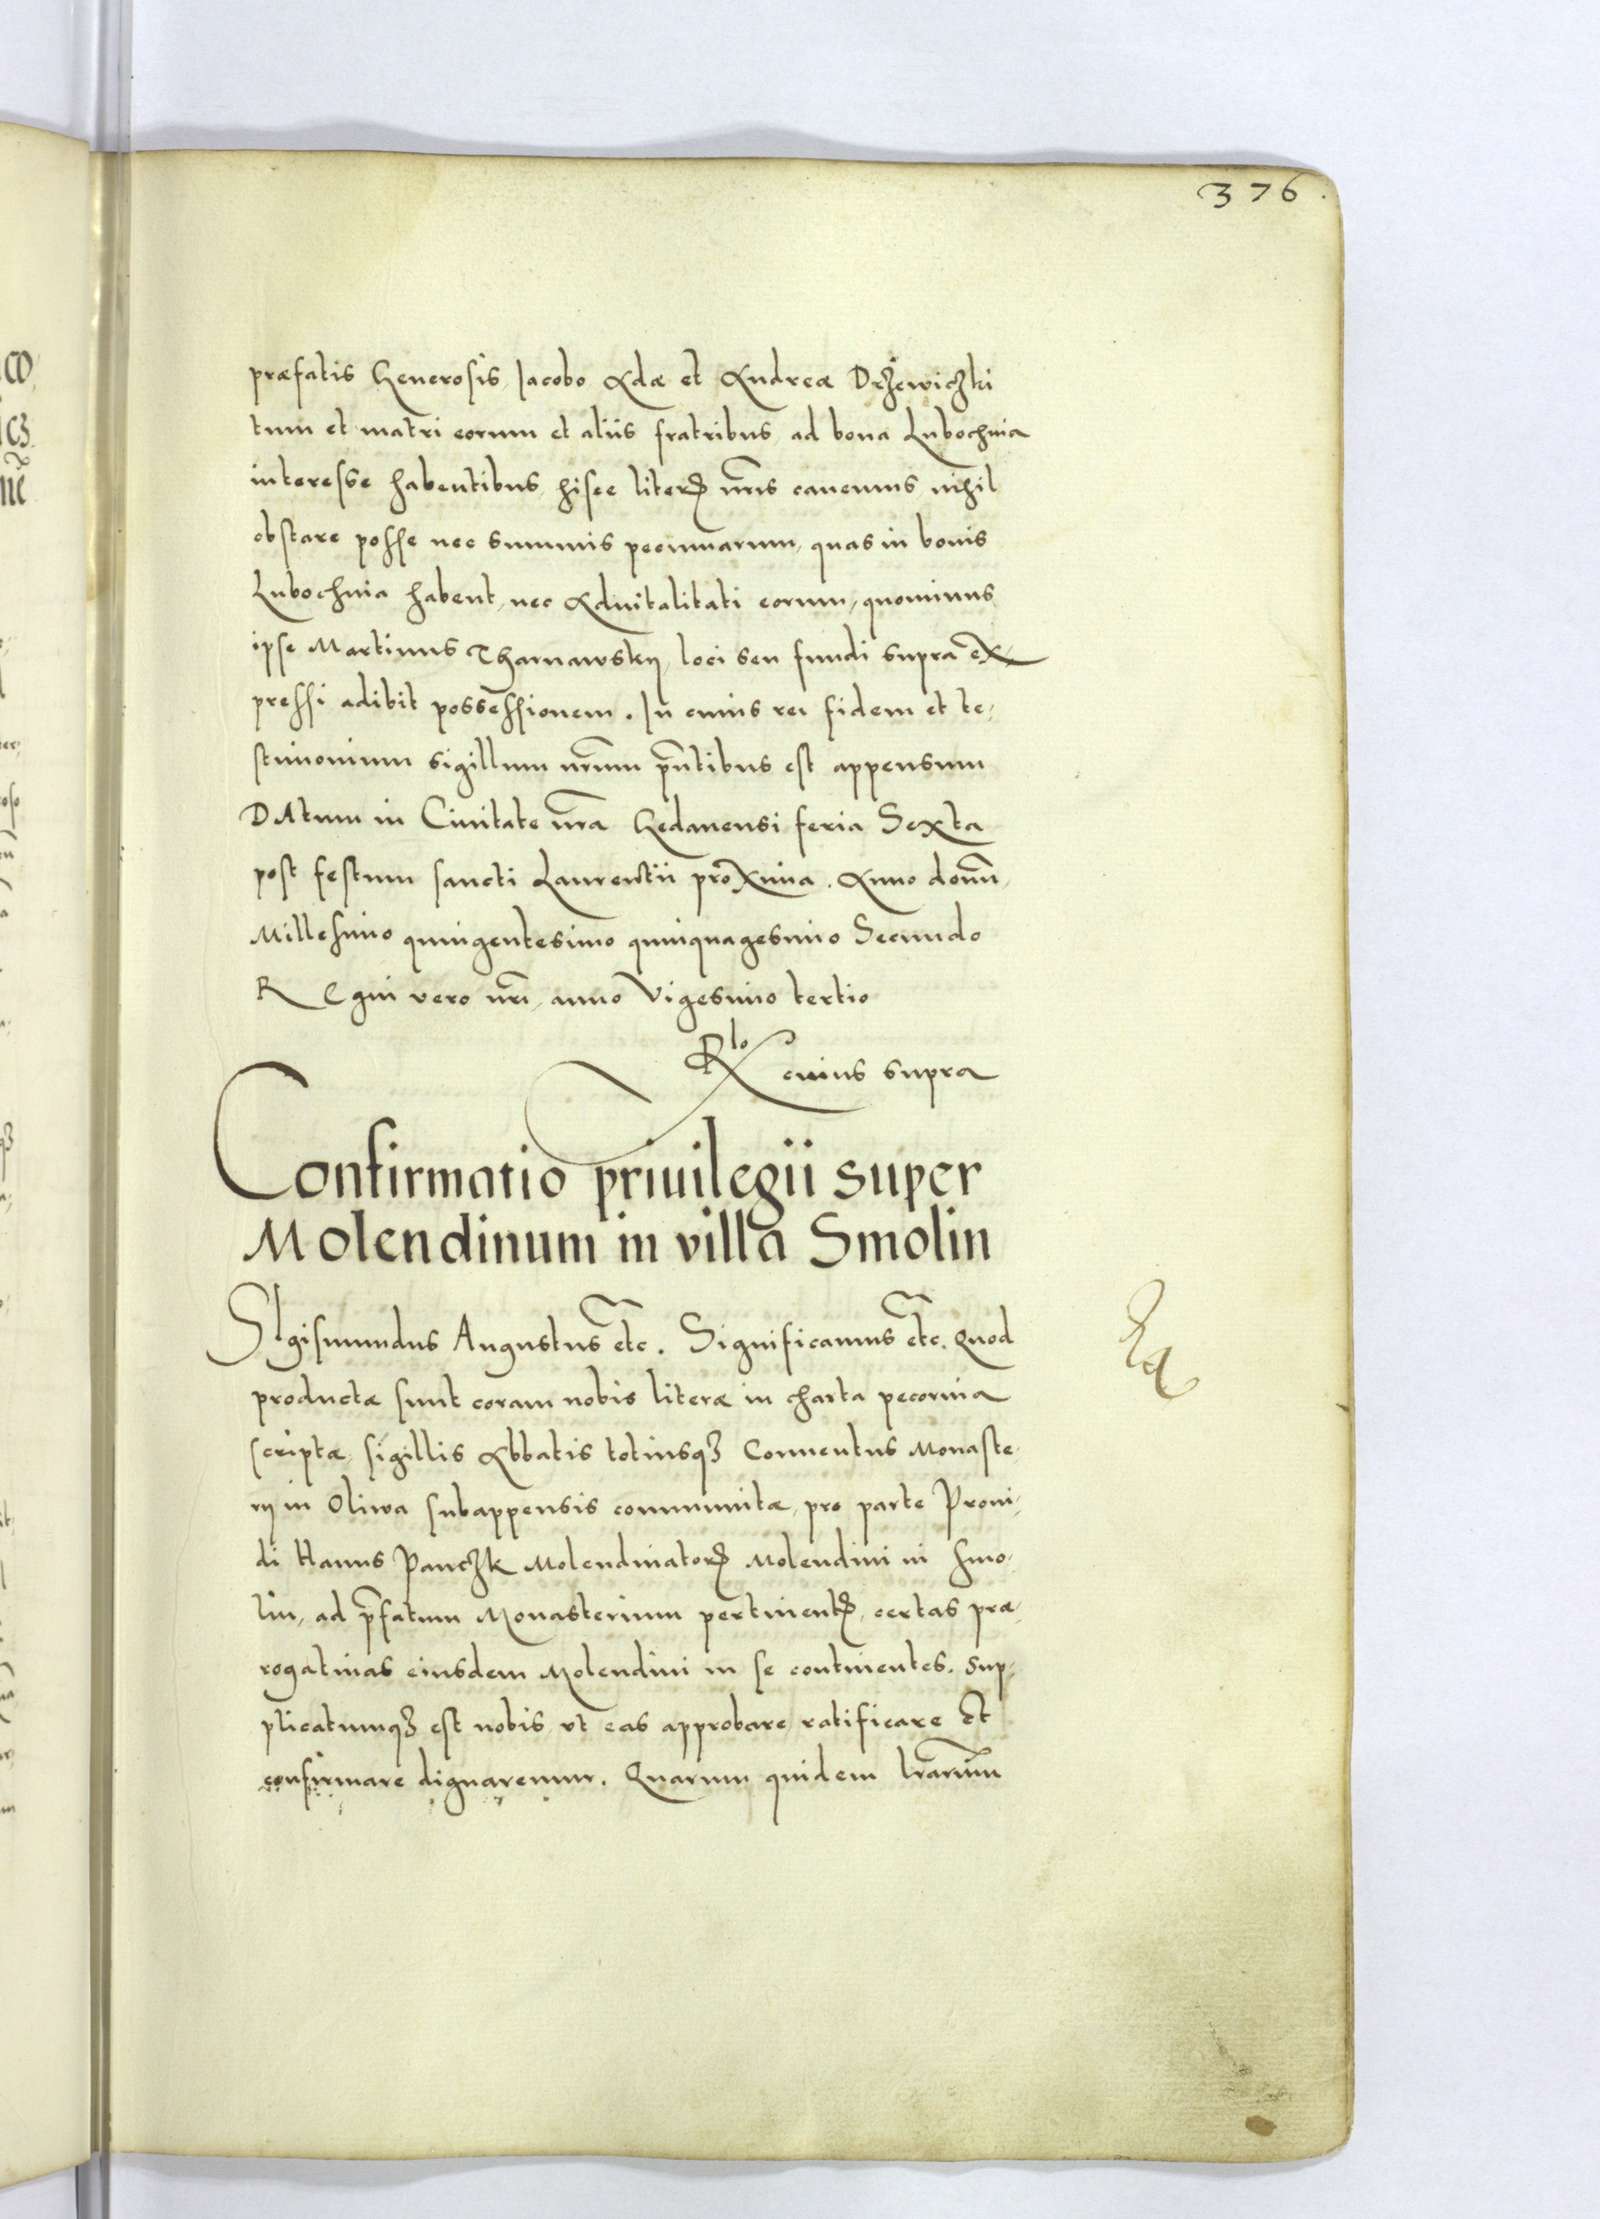 376.
præfatis Generosis, Iacobo Adæ et Andreæ Drżewiczki
tum et matri eorum et aliis fratribus, ad bona Lubochnia
interesse habentibus, hisce literꝭ nr̃is cauemus, nihil
obstare posse nec summis pecuniarum, quas in bonis
Lubochnia habent, nec Aduitalitati eorum, quominus
ipse Martinus Tharnawskÿ, loci seu fundi supra ex-
pressi adibit possessionem. In cuius rei fidem et te-
stimonium sigillum nr̃um pñtibus est appensum
DAtum in Ciuitate nr̃a Gedanensi feria Sexta
post festum sancti Laurentii proxima. Anno domñ,
Millesimo quingentesimo quinquagesimo Secundo
REgni vero nr̃i, anno Vigesimo tertio
Rlo cuius supra
Confirmatio priuilegii super
Molendinum in villa Smolin
SIgismundus Augustus etc. Significamus etc. Quod
productæ sunt coram nobis literæ in charta pecorina
scriptæ, sigillis Abbatis totiusqꝫ Conuentus Monaste-
rÿ in Oliwa subappensis communitæ, pro parte Proui-
di Hanus Panczk Molendinatorꝭ Molendini in Smo-
lin, ad p̃fatum Monasterium pertinentꝭ, certas præ-
rogatiuas eiusdem Molendini in se continentes. Sup-
plicatumqꝫ est nobis, vt eas approbare, ratificare Et
confirmare dignaremur. Quarum quidem lr̃arum